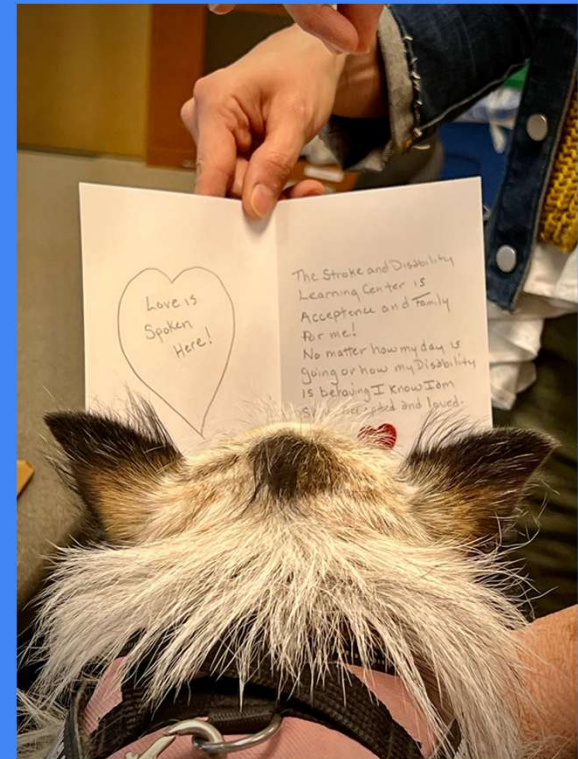 Love is
Spoken
Here!
The Stroke and Disability
Learning Center is
Acceptance and Family
For me!
No matter how my day is
going or how my Disability
is behaving I know I am
and loved.